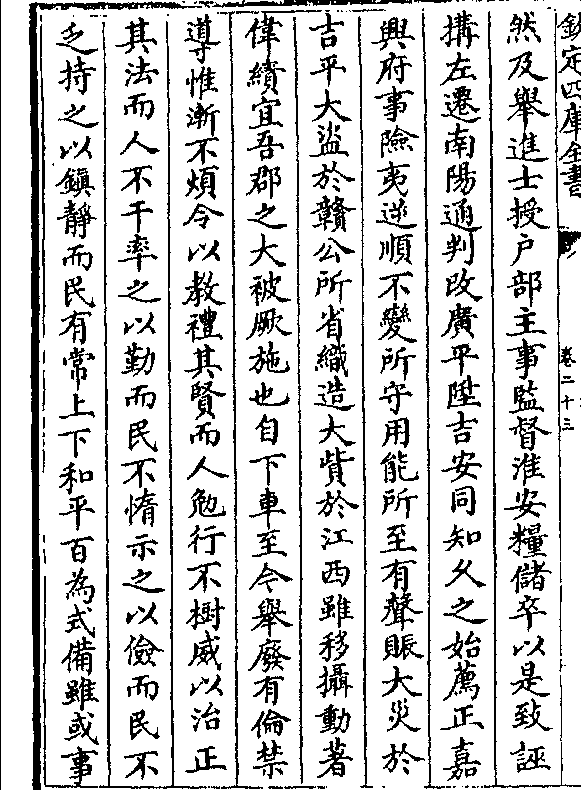 欽定四庫全書
卷二十三
然及舉進士授户部主事監督淮安糧儲卒以是致誣
搆左遷南陽通判改廣平陞吉安同知乆之始薦正嘉
興府事險夷逆順不變所守用能所至有聲賑大災於
吉平大盜於贛公所省織造大貲於江西雖移攝動著
偉績宜吾郡之大被厥施也自下車至今舉廢有倫禁
導惟漸不煩令以教禮其賢而人勉行不樹威以治正
其法而人不干率之以勤而民不惰示之以儉而民不
乏持之以鎮靜而民有常上下和平百為式備雖或事